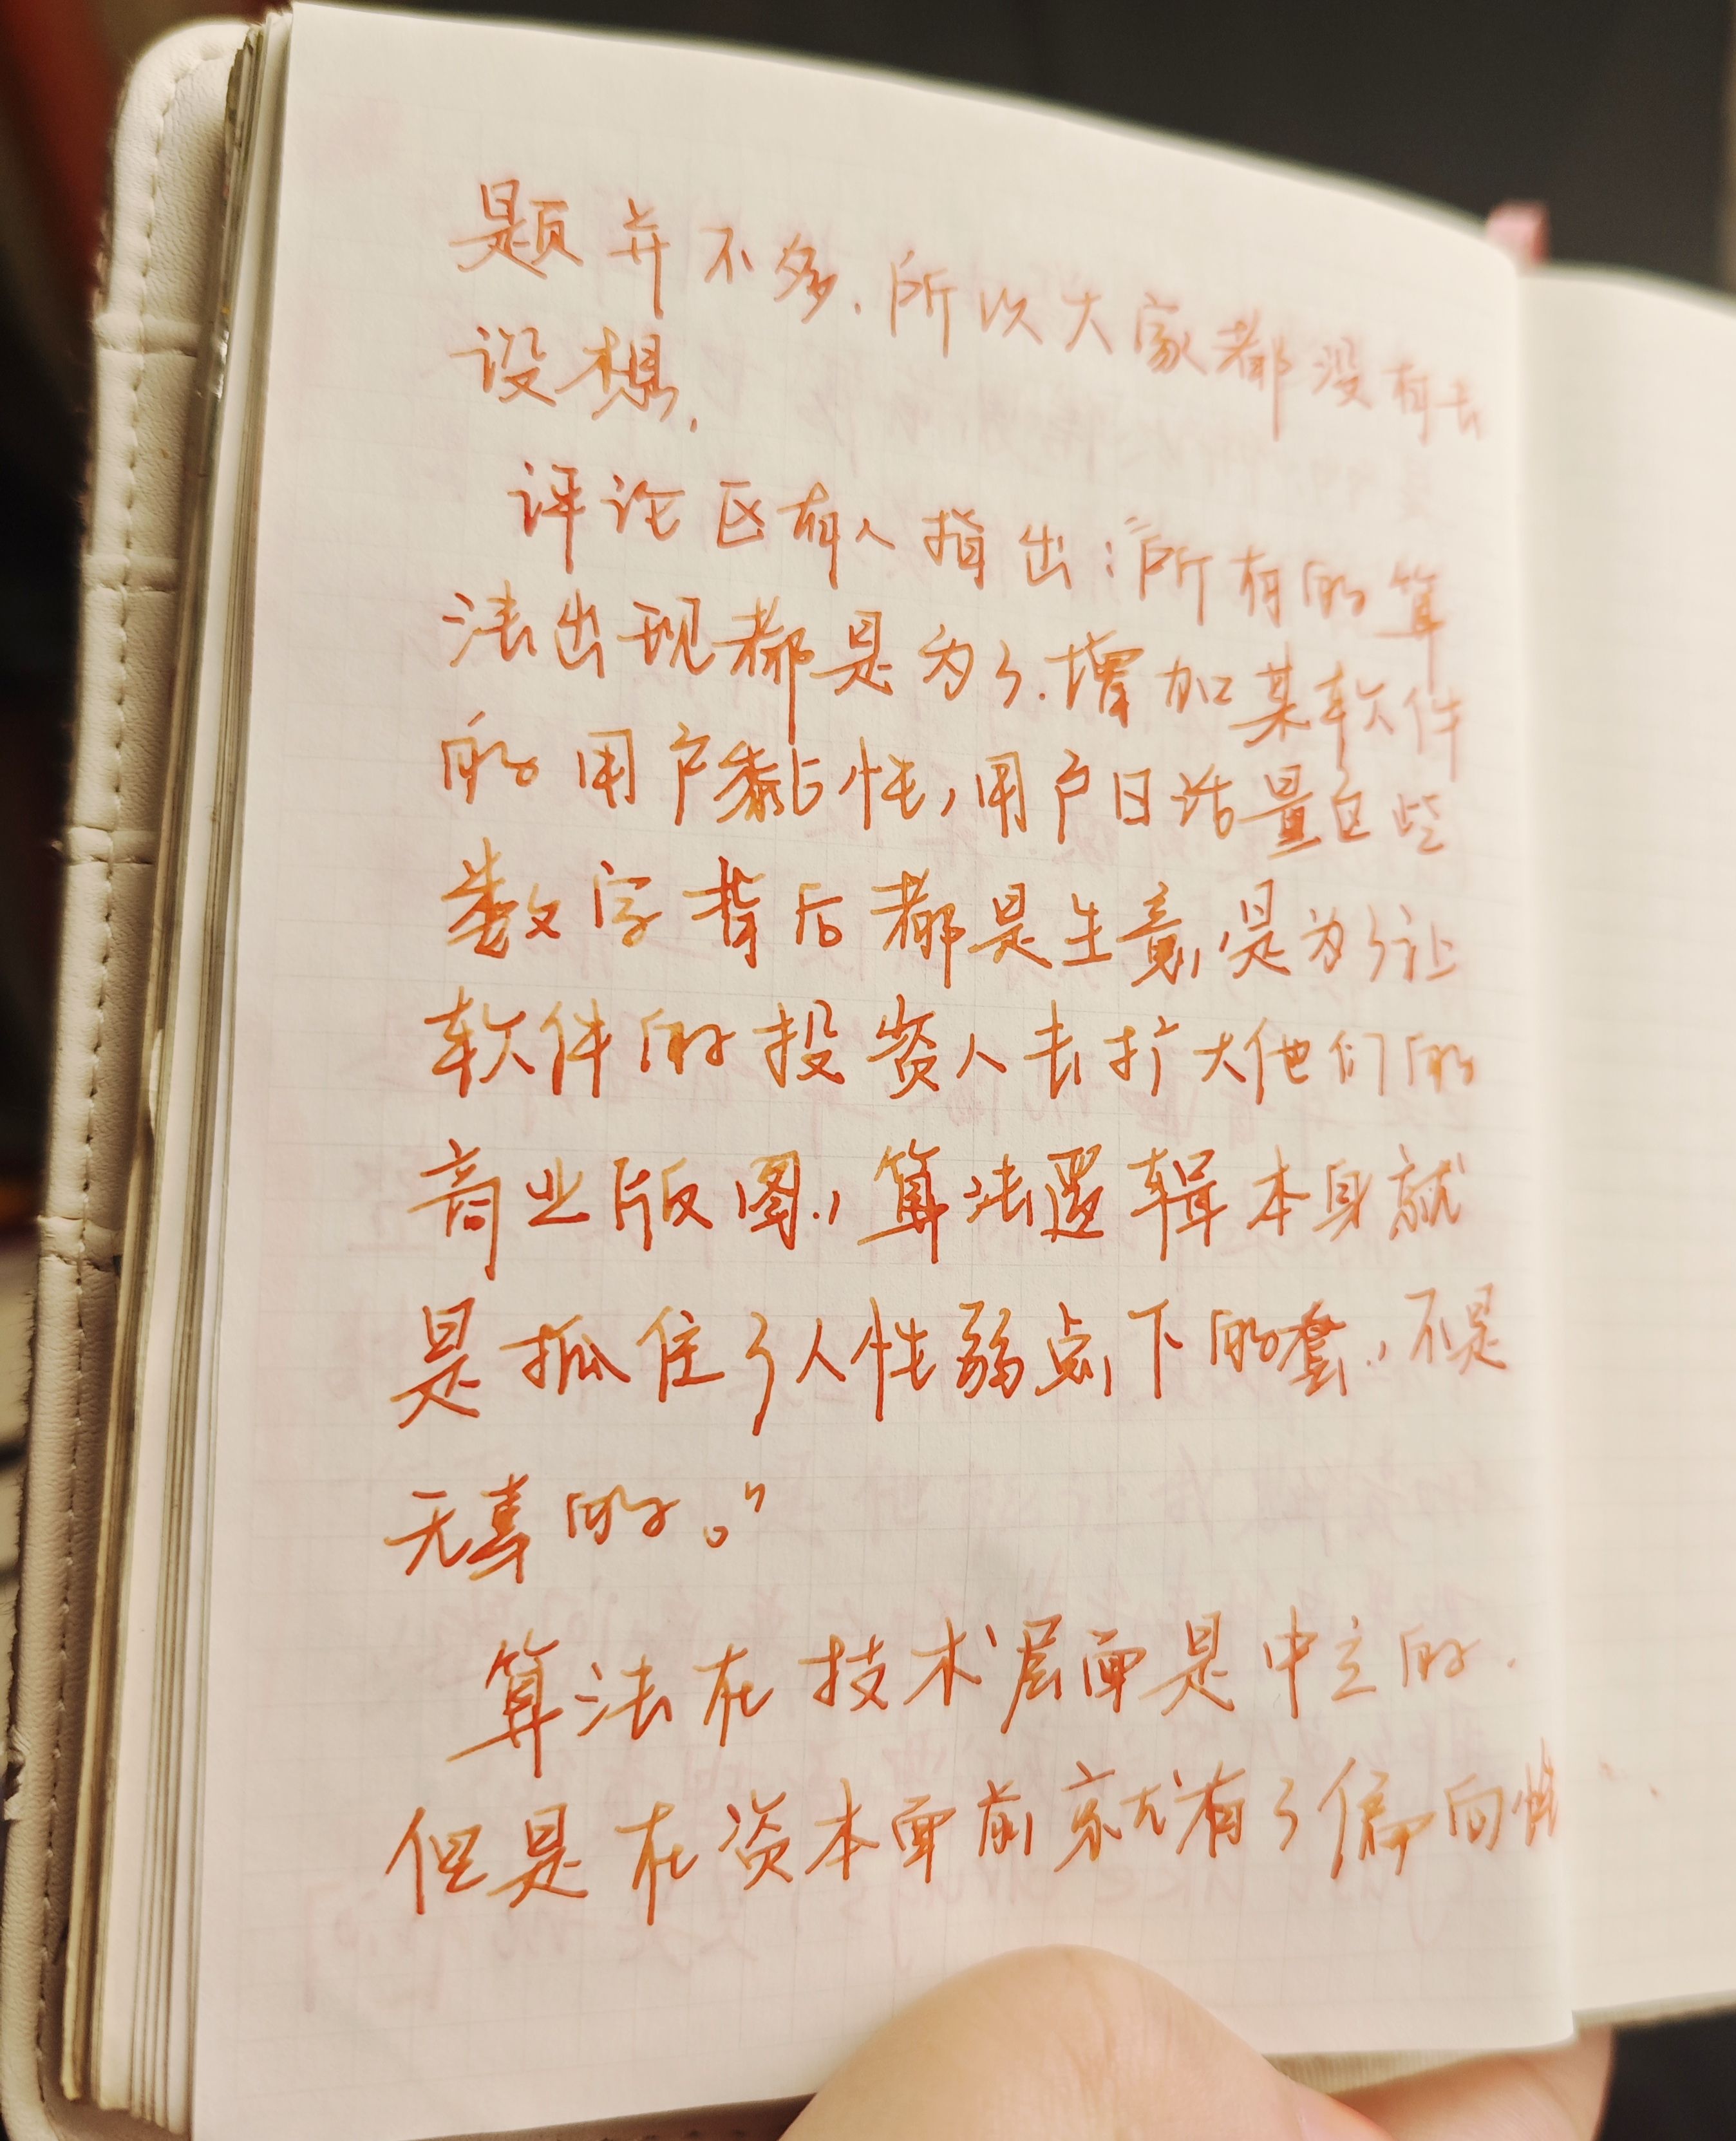 题并不多.所以大家都没有去
设想.
评论区有人指出:"所有的算
法出现都是为了.增加某软件
的用户黏性,用户日活量这些
数字背后都是生意,是为了让
软件的投资人去扩大他们的
商业版图.,算法逻辑本身就
是抓住了人性弱点下的套.,不是
无辜的。"
算法在技术层面是中立的.
但是在资本面前就有了偏向性